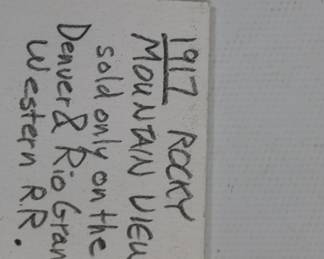 1917 ROCKY
MOUNTAIN VIEW
sold only on the
Denver & Rio Gran
Western R.R.